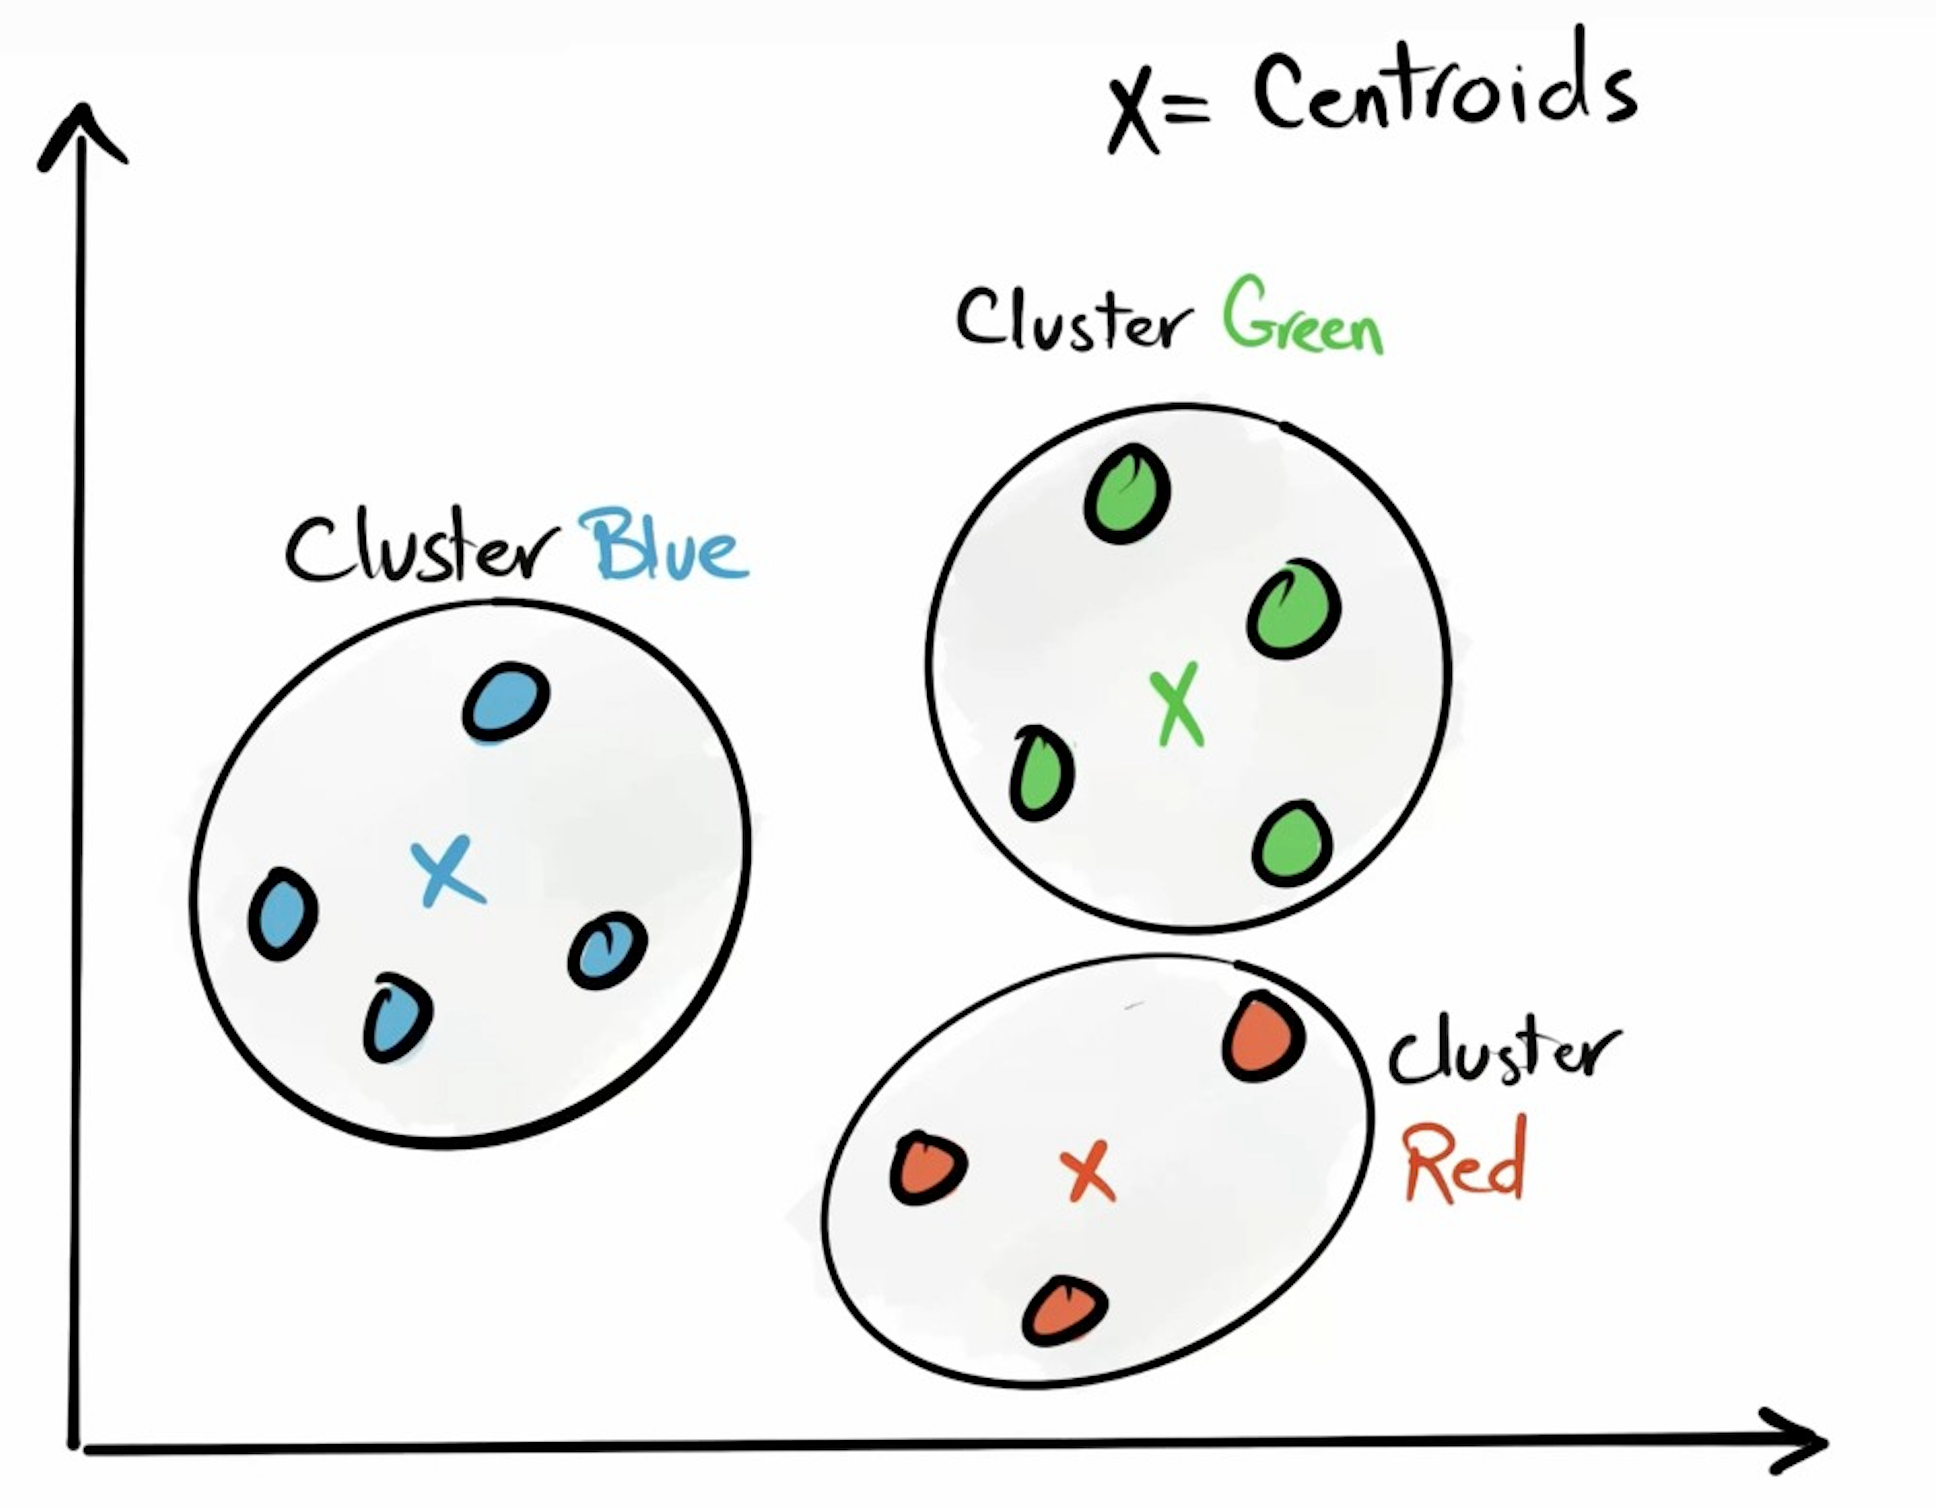 X= Centroids
Cluster Green
Cluster Blue
Cluster
Red